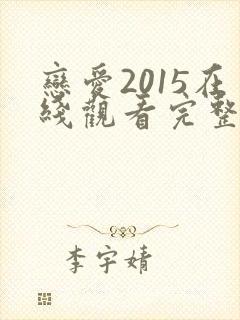 戀愛2015在
綫觀看完整
李宇婧